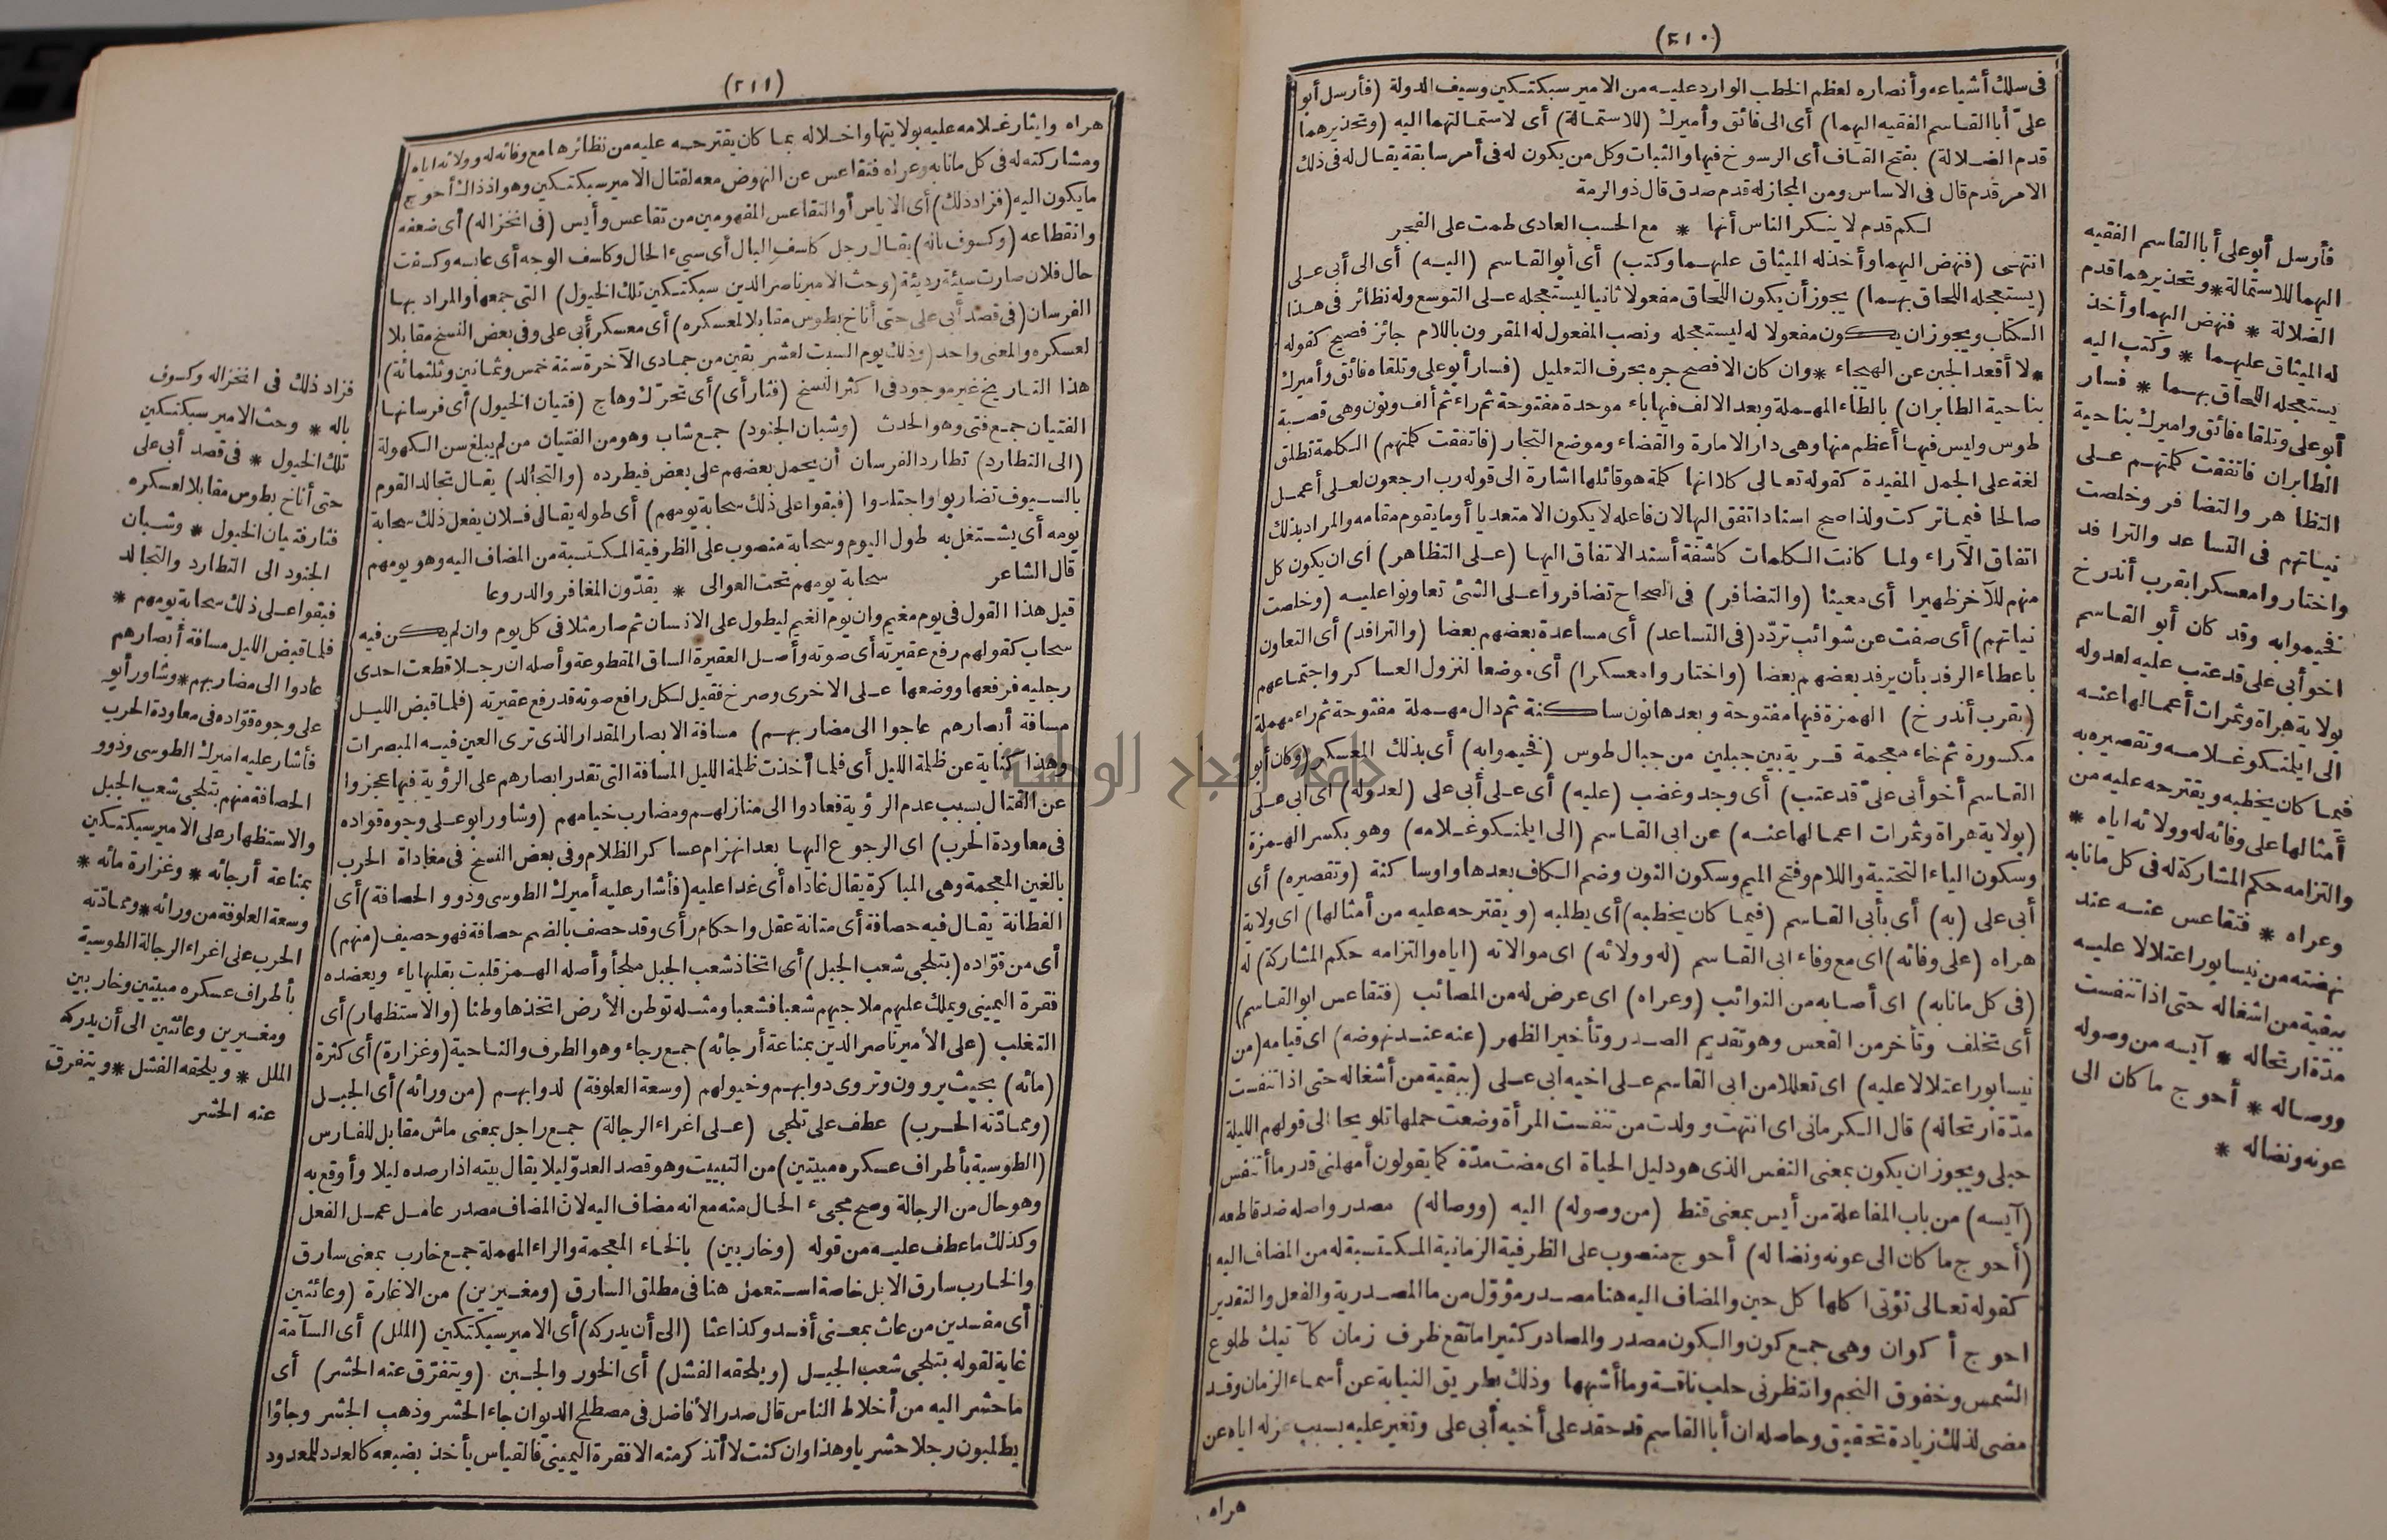 (٢١٠)
فى سلك أشياعه وأنصاره لعظم الخطب الوارد عليه من الامير سبكتكين وسيف الدولة (فأرسل أبو
علىّ أبا القاسم الفقيه اليهما) أى الى فائق وأميرك (للاستمالة) أى لاستمالتهما اليه (وتحذيرهما
قدم الضلالة) بفتح القاف أى الرسوخ فيها والثبات وكل من يكون له فى أمر سابقة يقال له فى ذلك
الامر قدم قال فى الاساس ومن المجاز له قدم صدق قال ذو الرمة
لكم قدم لا ينكر الناس أنها * مع الحسب العادى طمت على الفجر
انتهى (فنهض اليهما وأخذ له الميثاق عليهما وكتب) أى أبو القاسم (اليه) أى الى أبى على
(يستعجله اللحاق بهما) يجوز أن يكون اللحاق مفعولا ثانيا ليستعجله على التوسع وله نظائر فى هذا
الكتاب ويجوز ان يكون مفعولا له ليستعجله ونصب المفعول له المقرون باللام جائز فصيح كقوله
* لا أقعد الجبن عن الهيجاء * وان كان الافصح جره بحرف التعليل (فسار أبو على وتلقاه فائق وأميرك
بناحية الطابران) بالطاء المهملة وبعد الالف فيها باء موحدة مفتوحة ثم راء ثم ألف ونون وهى قصبة
طوس وليس فيها أعظم منها وهى دار الامارة والقضاء وموضع التجار (فاتفقت كلمتهم) الكلمة تطلق
لغة على الجمل المفيدة كقوله تعالى كلا انها كلمة هو قائلها اشارة الى قوله رب ارجعون لعلى أعمل
صالحا فيما تركت ولذا صح اسناد اتفق اليها لان فاعله لا يكون الا متعديا أو ما يقوم مقامه والمراد بذلك
اتفاق الآراء ولما كانت الكلمات كاشفة أسند الاتفاق اليها (على التظاهر) أى ان يكون كل
منهم للآخر ظهيرا أى معينا (والتضافر) فى الصحاح تضافروا على الشئ تعاونوا عليه (وخلصت
نياتهم) أى صفت عن شوائب تردّد (فى التساعد) أى مساعدة بعضهم بعضا (والترافد) أى التعاون
باعطاء الرفد بأن يرفد بعضهم بعضا (واختاروا معسكرا) أى موضعا لنزول العساكر واجتماعهم
(بقرب أندرخ) الهمزة فيها مفتوحة وبعدها نون ساكنة ثم دال مهملة مفتوحة ثم راء مهملة
مكسورة ثم خاء معجمة قرية بين جبلين من جبال طوس (فخيموا به) أى بذلك المعسكر (وكان أبو
القاسم أخو أبى علىّ قد عتب) أى وجد وغضب (عليه) أى على أبى على (لعدوله) أى أبى على
(بولاية هراة وثمرات اعمالها عنه) عن ابى القاسم (الى ايلمنكو غلامه) وهو بكسر الهمزة
وسكون الياء التحتية واللام وفتح الميم وسكون النون وضم الكاف بعدها واو ساكنة (وتقصيره) أى
أبى على (به) أى بأبى القاسم (فيما كان يخطبه) أى يطلبه (ويقترحه عليه من أمثالها) اى ولاية
هراه (على وفائه) اى مع وفاء ابى القاسم (له وولائه) اى موالاته (اياه والتزامه حكم المشاركة) له
(فى كل مانابه) اى أصابه من النوائب (وعراه) اى عرض له من المصائب (فتقاعس ابو القاسم)
أى تخلف وتأخر من القعس وهو تقديم الصدر وتأخير الظهر (عنه عند نهوضه) اى قيامه (من
نيسابور اعتلالا عليه) اى تعللا من ابى القاسم على اخيه ابى على (ببقية من أشغاله حتى اذا تنفست
مدّة ارتحاله) قال الكرمانى اى انتهت وولدت من تنفست المرأة وضعت حملها تلويحا الى قولهم الليلة
حبلى ويجوز ان يكون بمعنى النفس الذى هو دليل الحياة اى مضت مدّة كما يقولون أمهلنى قدر ما أتنفس
(آيسه) من باب المفاعلة من أيس بمعنى قنط (من وصوله) اليه (ووصاله) مصدر واصله ضد قاطعه
(أحوج ما كان الى عونه ونضاله) أحوج منصوب على الظرفية الزمانية المكتسبة له من المضاف اليه
كقوله تعالى تؤتى اكلها كل حين والمضاف اليه هنا مصدر مؤوّل من ما المصدرية والفعل والتقدير
احوج أكوان وهى جمع كون والكون مصدر والمصادر كثيرا ما تقع ظرف زمان كآتيك طلوع
الشمس وخفوق النجم وانتظرنى حلب ناقة وما أشبهها وذلك بطريق النيابة عن أسماء الزمان وقد
مضى لذلك زيادة تحقيق وحاصله ان أبا القاسم قد حقد على أخيه أبى على وتغير عليه بسبب عزله اياه عن
هراه
فأرسل أبو على أبا القاسم الفقيه
اليهما للاستمالة * وتحذيرهما قدم
الضلالة * فنهض اليهما وأخذ
له الميثاق عليهما * وكتب اليه
يستعجله اللحاق بهما * فسار
أبو على وتلقاه فائق واميرك بناحية
الطابران فاتفقت كلمتهم على
التظاهر والتضافر وخلصت
نياتهم فى التساعد والترافد
واختاروا معسكرا بقرب أندرخ
فخيموا به وقد كان أبو القاسم
اخو أبى على قد عتب عليه لعدوله
بولاية هراة وثمرات أعمالها عنه
الى ايلمنكو غلامه وتقصيره به
فيما كان يخطبه ويقترحه عليه من
أمثالها على وفائه له وولائه اياه *
والتزامه حكم المشاركة له فى كل مانابه
وعراه * فتقاعس عنه عند
نهضته من نيسابور اعتلالا عليه
ببقية من اشغاله حتى اذا تنفست
مدّة ارتحاله * آيسه من وصوله
ووصاله * أحوج ما كان الى
عونه ونضاله *
(٢١١)
هراه وايثار غلامه عليه بولايتها واخلاله بما كان يقترحه عليه من نظائرها مع وفائه له وولائه اياه
ومشاركته له فى كل مانابه وعراه فتقاعس عن النهوض معه لقتال الامير سبكتكين وهو اذ ذاك أحوج
ما يكون اليه (فزاد ذلك) أى الاياس أو التقاعس المفهومين من تقاعس وأيس (فى انخزاله) أى ضعفه
وانقطاعه (وكسوف باله) يقال رجل كاسف البال أى سيء الحال وكاسف الوجه أى عابسه وكسفت
حال فلان صارت سيئة رديئة (وحث الامير ناصر الدين سبكتكين تلك الخيول) التى جمعها والمراد بها
الفرسان (فى قصد أبى على حتى أناخ بطوس مقابلا لمعسكره) أى معسكر أبى على وفى بعض النسخ مقابلا
لعسكره والمعنى واحد (وذلك يوم السبت لعشر بقين من جمادى الآخرة سنة خمس وثمانين وثلثمائة)
هذا التاريخ غير موجود فى اكثر النسخ (فثار أى) أى تحرّك وهاج (فتيان الخيول) أى فرسانها
الفتيان جمع فتى وهو الحدث (وشبان الجنود) جمع شاب وهو من الفتيان من لم يبلغ سن الكهولة
(الى التطارد) تطارد الفرسان أن يحمل بعضهم على بعض فيطرده (والتجالد) يقال تجالد القوم
بالسيوف تضاربوا واجتلدوا (فبقوا على ذلك سحابة يومهم) أى طوله يقال فلان يفعل ذلك سحابة
يومه أى يشتغل به طول اليوم وسحابة منصوب على الظرفية المكتسبة من المضاف اليه وهو يومهم
قال الشاعر سحابة يومهم تحت العوالى * يقدّون المغافر والدروعا
قيل هذا القول فى يوم مغيم وان يوم الغيم ليطول على الانسان ثم صار مثلا فى كل يوم وان لم يكن فيه
سحاب كقولهم رفع عقيرته أى صوته وأصل العقيرة الساق المقطوعة وأصله ان رجلا قطعت احدى
رجليه فرفعها ووضعها على الاخرى وصرخ فقيل لكل رافع صوته قد رفع عقيرته (فلما قبض الليل
مسافة أبصارهم عاجوا الى مضاربهم) مسافة الابصار المقدار الذى ترى العين فيه المبصرات
وهذا كناية عن ظلمة الليل أى فلما أخذت ظلمة الليل المسافة التى تقدر ابصارهم على الرؤية فيها عجزوا
عن القتال بسبب عدم الرؤية فعادوا الى منازلهم ومضارب خيامهم (وشاور ابو على وجوه قواده
فى معاودة الحرب) اى الرجوع اليها بعد انهزام عساكر الظلام وفى بعض النسخ فى مغاداة الحرب
بالغين المعجمة وهى المباكرة يقال غاداه أى غدا عليه (فأشار عليه أميرك الطوسى وذوو الحصافة) أى
الفطانة يقال فيه حصافة أى متانة عقل واحكام رأى وقد حصف بالضم حصافة فهو حصيف (منهم)
أى من قوّاده (بتلجى شعب الجبل) أى اتخاذ شعب الجبل ملجأ وأصله الهمز قلبت بقلبها ياء ويعضده
فقرة اليمينى ويملك عليهم ملاجيهم شعبا فشعبا ومثله توطن الأرض اتخذها وطنا (والاستظهار) أى
التغلب (على الأمير ناصر الدين بمناعة أرجائه) جمع رجاء وهو الطرف والناحية (وغزارة) أى كثرة
(مائه) بحيث يروون وتروى دوابهم وخيولهم (وسعة العلوفة) لدوابهم (من ورائه) أى الجبل
(ومماتنه الحرب) عطف على تلجى (على اغراء الرجالة) جمع راجل بمعنى ماش مقابل للفارس
(الطوسية بأطراف عسكره مبيتين) من التبييت وهو قصد العدوّ ليلا يقال بيته اذا رصده ليلا وأوقع به
وهو حال من الرجالة وصح مجىء الحال منه مع انه مضاف اليه لان المضاف مصدر عامل عمل الفعل
وكذلك ما عطف عليه من قوله (وخاربين) بالخاء المعجمة والراء المهملة جمع خارب بمعنى سارق
والخارب سارق الابل خاصة استعمل هنا فى مطلق السارق (ومغيرين) من الاغارة (وعائثين
أى مفسدين من عاث بمعنى أفسد وكذا عثا (الى أن يدركه) أى الامير سبكتكين (الملل) أى السآمة
غاية لقوله بتلجى شعب الجبل (ويلحقه الفشل) أى الخور والجبن (ويتفرّق عنه الحشر) أى
ما حشر اليه من أخلاط الناس قال صدر الأفاضل فى مصطلح الديوان جاء الحشر وذهب الحشر وجاؤا
يطلبون رجلا حشريا وهذا وان كنت لا أتذكر منه الا فقرة اليمينى فالقياس يأخذ بضبعه كالعدد للمعدود
فزاد ذلك فى انخزاله وكسوف
باله * وحث الامير سبكتكين
تلك الخيول * فى قصد أبى على
حتى أناخ بطوس مقابلا لعسكره
فثار فتيان الخيول * وشبان
الجنود الى التطارد والتجالد
فبقوا على ذلك سحابة يومهم *
فلما قبض الليل مسافة أبصارهم
عادوا الى مضاربهم * وشاور أبو
على وجوه قوّاده فى معاودة الحرب
فأشار عليه اميرك الطوسى وذوو
الحصافة منهم بتلجى شعب الجبل
والاستظهار على الامير سبكتكين
بمناعة أرجائه * وغزارة مائه *
وسعة العلوفة من ورائه * ومماتنه
الحرب على اغراء الرجالة الطوسية
بأطراف عسكره مبيتين وخاربين
ومغيرين وعائثين الى أن يدركه
الملل * ويلحقه الفشل * ويتفرق
عنه الحشر
جامعة النجاح الوطنية